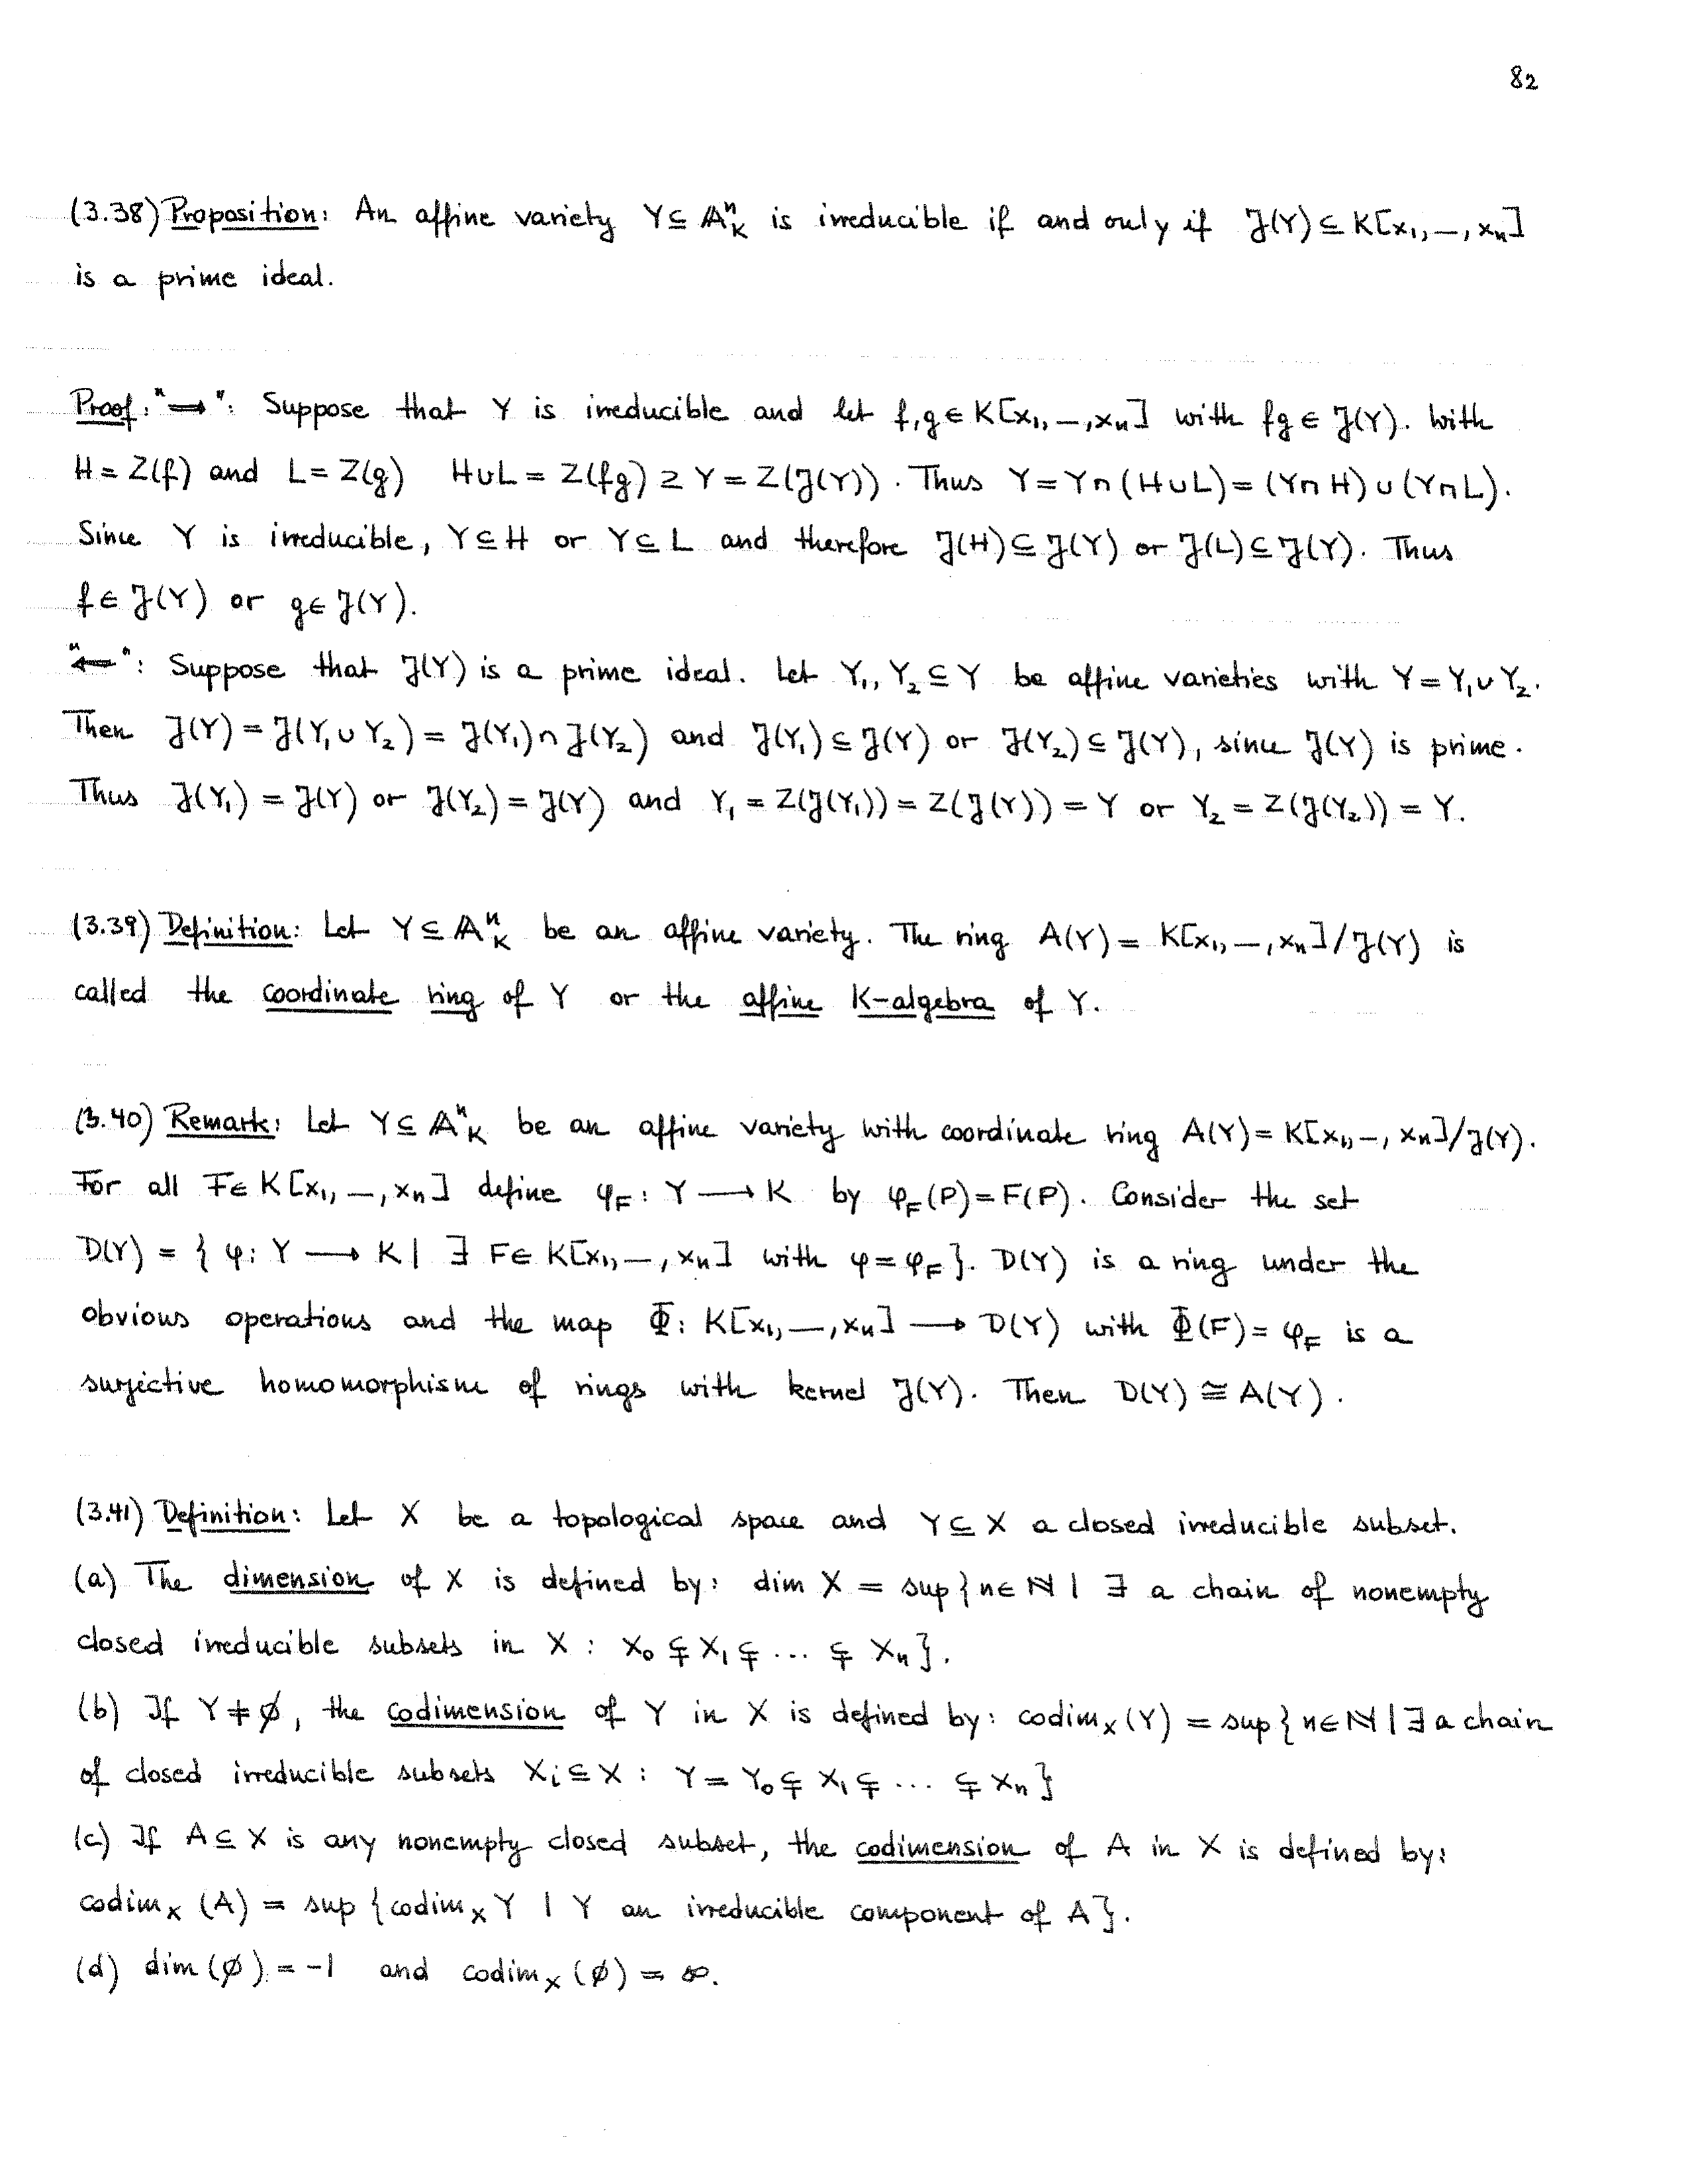 82
(3.38) Proposition: An affine variety Y ⊆ 𝔸ⁿ_K is irreducible if and only if 𝒥(Y) ⊆ K[x₁,—,xₙ]
is a prime ideal.
Proof: "⟹": Suppose that Y is irreducible and let f,g ∈ K[x₁,—,xₙ] with fg ∈ 𝒥(Y). With
H = Z(f) and L = Z(g) H∪L = Z(fg) ⊇ Y = Z(𝒥(Y)). Thus Y = Y∩(H∪L) = (Y∩H)∪(Y∩L).
Since Y is irreducible, Y⊆H or Y⊆L and therefore 𝒥(H)⊆𝒥(Y) or 𝒥(L)⊆𝒥(Y). Thus
f∈𝒥(Y) or g∈𝒥(Y).
"⟸": Suppose that 𝒥(Y) is a prime ideal. Let Y₁, Y₂ ⊆ Y be affine varieties with Y = Y₁∪Y₂.
Then 𝒥(Y) = 𝒥(Y₁∪Y₂) = 𝒥(Y₁)∩𝒥(Y₂) and 𝒥(Y₁)⊆𝒥(Y) or 𝒥(Y₂)⊆𝒥(Y), since 𝒥(Y) is prime.
Thus 𝒥(Y₁) = 𝒥(Y) or 𝒥(Y₂) = 𝒥(Y) and Y₁ = Z(𝒥(Y₁)) = Z(𝒥(Y)) = Y or Y₂ = Z(𝒥(Y₂)) = Y.
(3.39) Definition: Let Y ⊆ 𝔸ⁿ_K be an affine variety. The ring A(Y) = K[x₁,—,xₙ]/𝒥(Y) is
called the coordinate ring of Y or the affine K-algebra of Y.
(3.40) Remark: Let Y ⊆ 𝔸ⁿ_K be an affine variety with coordinate ring A(Y) = K[x₁,—,xₙ]/𝒥(Y).
For all F∈K[x₁,—,xₙ] define φ_F: Y ⟶ K by φ_F(P) = F(P). Consider the set
D(Y) = { φ: Y ⟶ K | ∃ F∈K[x₁,—,xₙ] with φ = φ_F }. D(Y) is a ring under the
obvious operations and the map Φ: K[x₁,—,xₙ] ⟶ D(Y) with Φ(F) = φ_F is a
surjective homomorphism of rings with kernel 𝒥(Y). Then D(Y) ≅ A(Y).
(3.41) Definition: Let X be a topological space and Y ⊆ X a closed irreducible subset.
(a) The dimension of X is defined by: dim X = sup{ n∈ℕ | ∃ a chain of nonempty
closed irreducible subsets in X : X₀ ⊊ X₁ ⊊ ... ⊊ Xₙ }.
(b) If Y ≠ ∅, the codimension of Y in X is defined by: codim_X(Y) = sup{ n∈ℕ | ∃ a chain
of closed irreducible subsets Xᵢ ⊆ X : Y = Y₀ ⊊ X₁ ⊊ ... ⊊ Xₙ }
(c) If A ⊆ X is any nonempty closed subset, the codimension of A in X is defined by:
codim_X (A) = sup {codim_X Y | Y an irreducible component of A}.
(d) dim (∅) = -1 and codim_X (∅) = ∞.